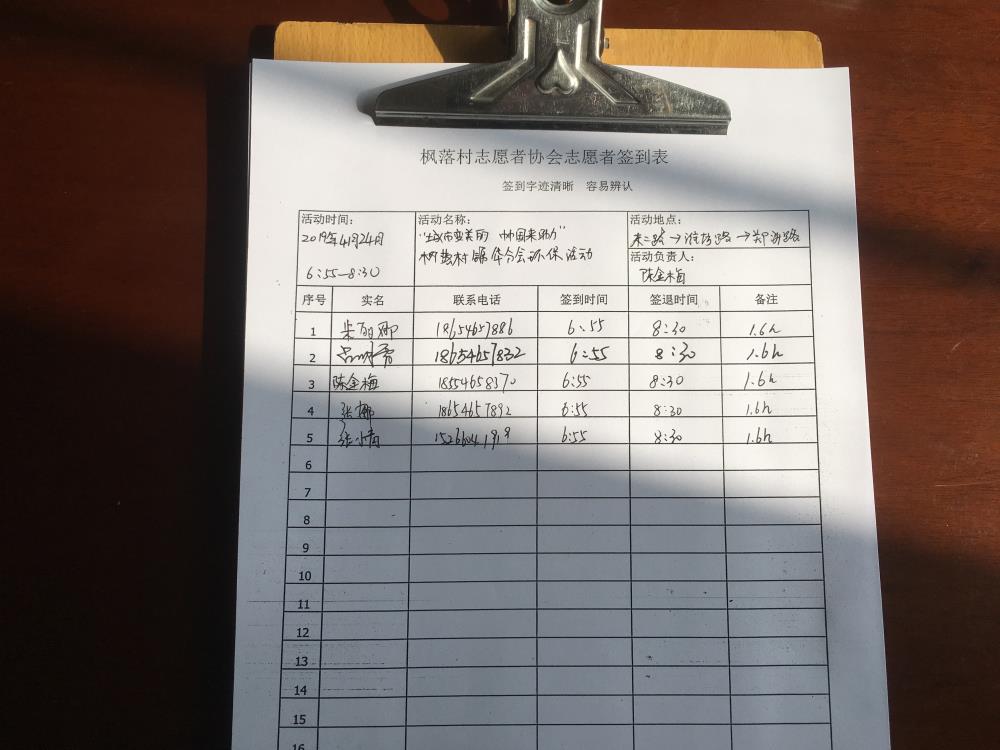 枫落村志愿者协会志愿者签到表
签到字迹清晰 容易辨认
活动时间： 活动名称： 活动地点：
2019年4月24日
6:55—8:30
环保活动
活动负责人：
陈金梅
序号 实名 联系电话 签到时间 签退时间 备注
1 18654657886 6:55 8:30 1.6h
2 18654657832 6:55 8:30 1.6h
3 陈金梅 18554658370 6:55 8:30 1.6h
4 张娜 18654657892 6:55 8:30 1.6h
5 张小倩 6:55 8:30 1.6h
6
7
8
9
10
11
12
13
14
15
16